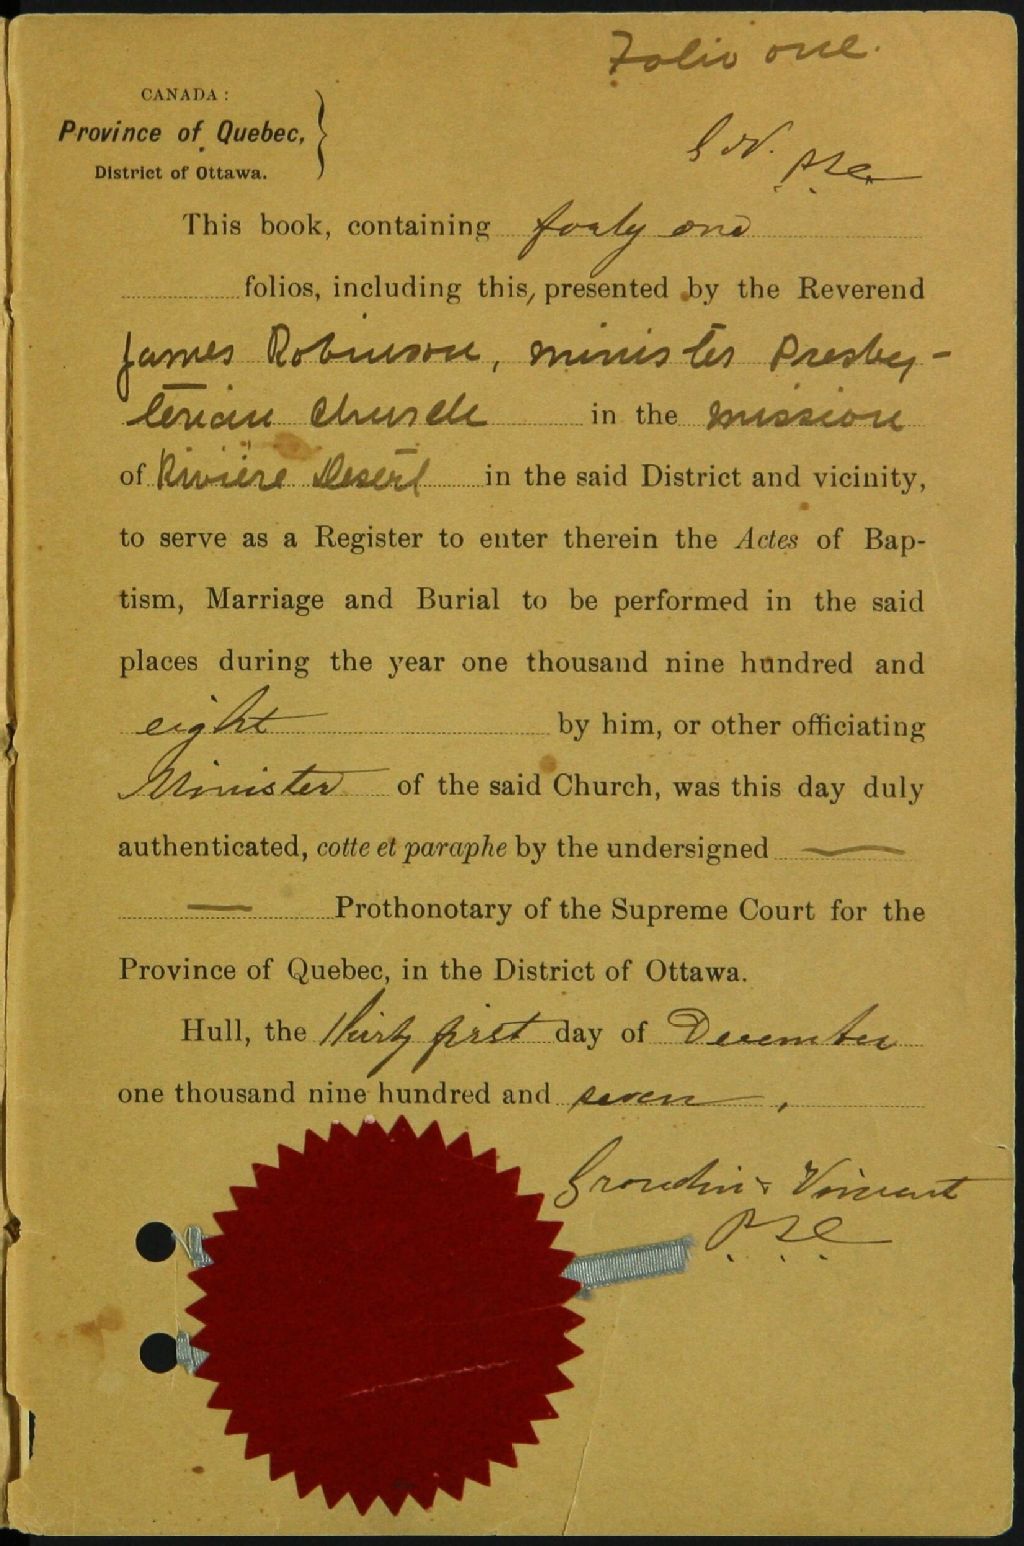 Folio one.
CANADA:
Province of Quebec,
District of Ottawa.
G & V. PSC
This book, containing forty one
folios, including this, presented by the Reverend
James Robinson, minister Presby-
terian Church in the mission
of Rivière Desert in the said District and vicinity,
to serve as a Register to enter therein the Actes of Bap-
tism, Marriage and Burial to be performed in the said
places during the year one thousand nine hundred and
eight by him, or other officiating
Minister of the said Church, was this day duly
authenticated, cotte et paraphe by the undersigned —
— Prothonotary of the Supreme Court for the
Province of Quebec, in the District of Ottawa.
Hull, the Thirty first day of December
one thousand nine hundred and seven,
Grondin & Vincent
PSC